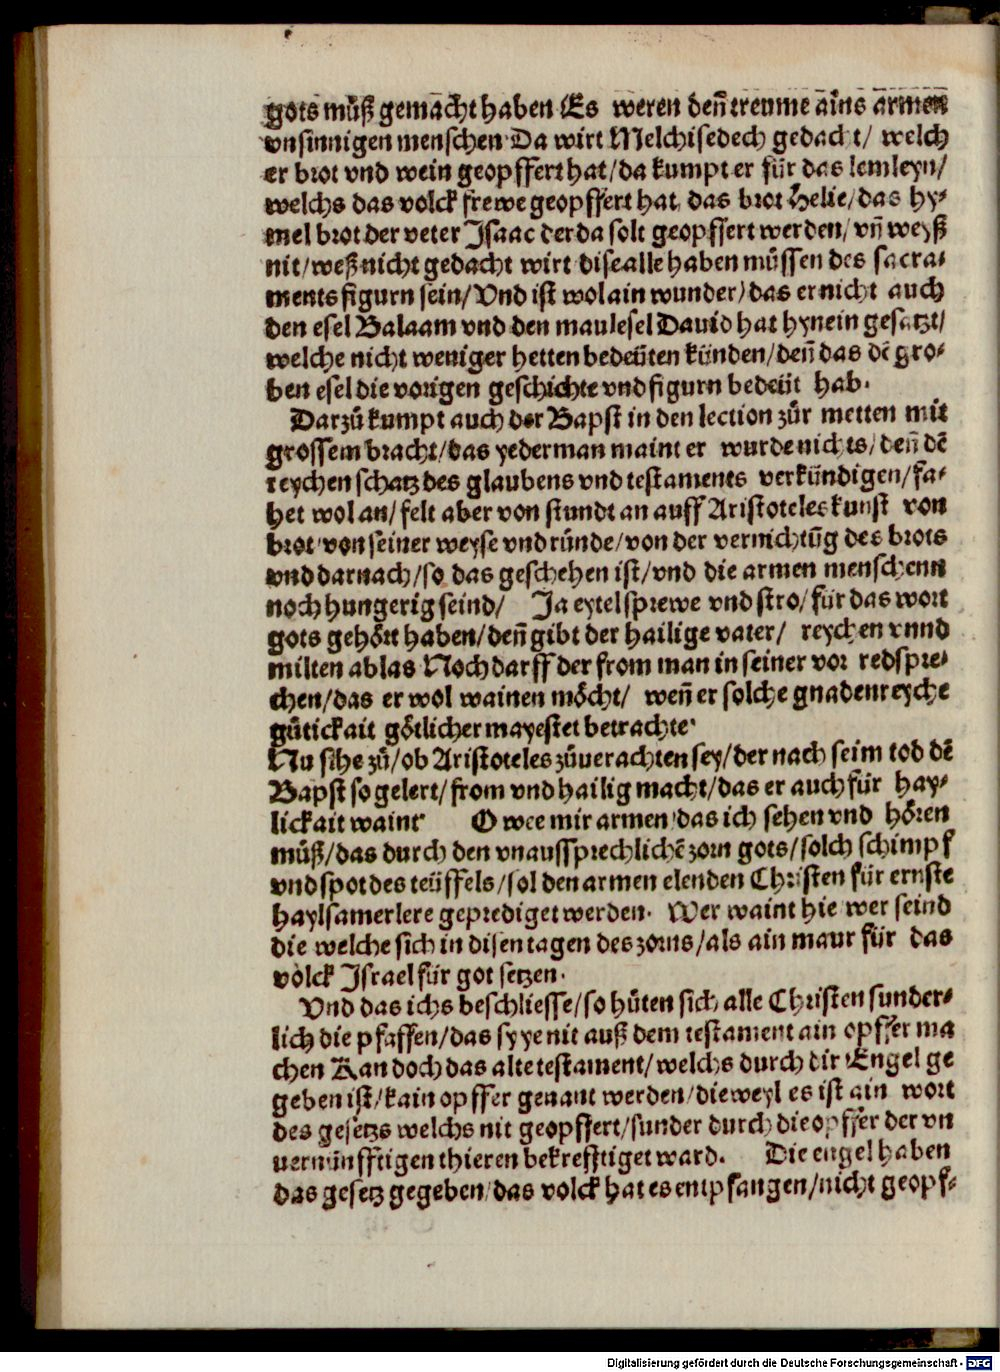 gots můß gemacht haben Es weren deñ treume ains armen
vnsinnigen menschen Da wirt Melchisedech gedacht/ welch
er brot vnd wein geopffert hat/da kumpt er für das lemleyn/
welchs das volck frewe geopffert hat, das brot Helie/das hy⸗
mel brot der veter Isaac der da solt geopffert werden/ vñ weyß
nit/weß nicht gedacht wirt dise alle haben müssen des sacra⸗
ments figurn sein/Vnd ist wol ain wunder/das er nicht auch
den esel Balaam vnd den maulesel Dauid hat hynein gesatzt/
welche nicht weniger hetten bedeüten künden/deñ das dē gro⸗
ben esel die vorigen geschichte vnd figurn bedeüt hab.
Darzů kumpt auch der Bapst in den lection zůr metten mit
grossem bracht/das yederman maint er wurde nichts/deñ dē
reychen schatz des glaubens vnd testaments verkündigen/fa⸗
het wol an/felt aber von stundt an auff Aristoteles kunst von
brot von seiner weyse vnd ründe/von der vernichtūg des brots
vnd darnach/so das geschehen ist/vnd die armen menschenn
noch hungerig seind/ Ja eytel sprewe vnd stro/für das wort
gots gehört haben/deñ gibt der hailige vater/ reychen vnnd
milten ablas Noch darff der from man in seiner vor redspre⸗
chen/das er wol wainen möcht/ weñ er solche gnadenreyche
gůtickait götlicher mayestet betrachte.
Nu sihe zů/ob Aristoteles zůuerachten sey/der nach seim tod dē
Bapst so gelert/from vnd hailig macht/das er auch für hay⸗
lickait waint. O wee mir armen/das ich sehen vnd hören
můß/das durch den vnaussprechlichē zorn gots/solch schimpf
vnd spot des teüffels/sol den armen elenden Christen für ernste
haylsamer lere geprediget werden. Wer waint hie wer seind
die welche sich in disen tagen des zorns/als ain maur für das
volck Israel für got setzen.
Vnd das ichs beschliesse/so hüten sich alle Christen sunder⸗
lich die pfaffen/das sy ye nit auß dem testament ain opffer ma
chen Kan doch das alte testament/welchs durch dir Engel ge
geben ist/kain opffer genant werden/die weyl es ist ain wort
des gesetzs welchs nit geopffert/sunder durch die opffer der vn
uernünfftigen thieren bekrefftiget ward. Die engel haben
das gesetz gegeben/das volck hat es empfangen/nicht geopf⸗
Digitalisierung gefördert durch die Deutsche Forschungsgemeinschaft - DFG